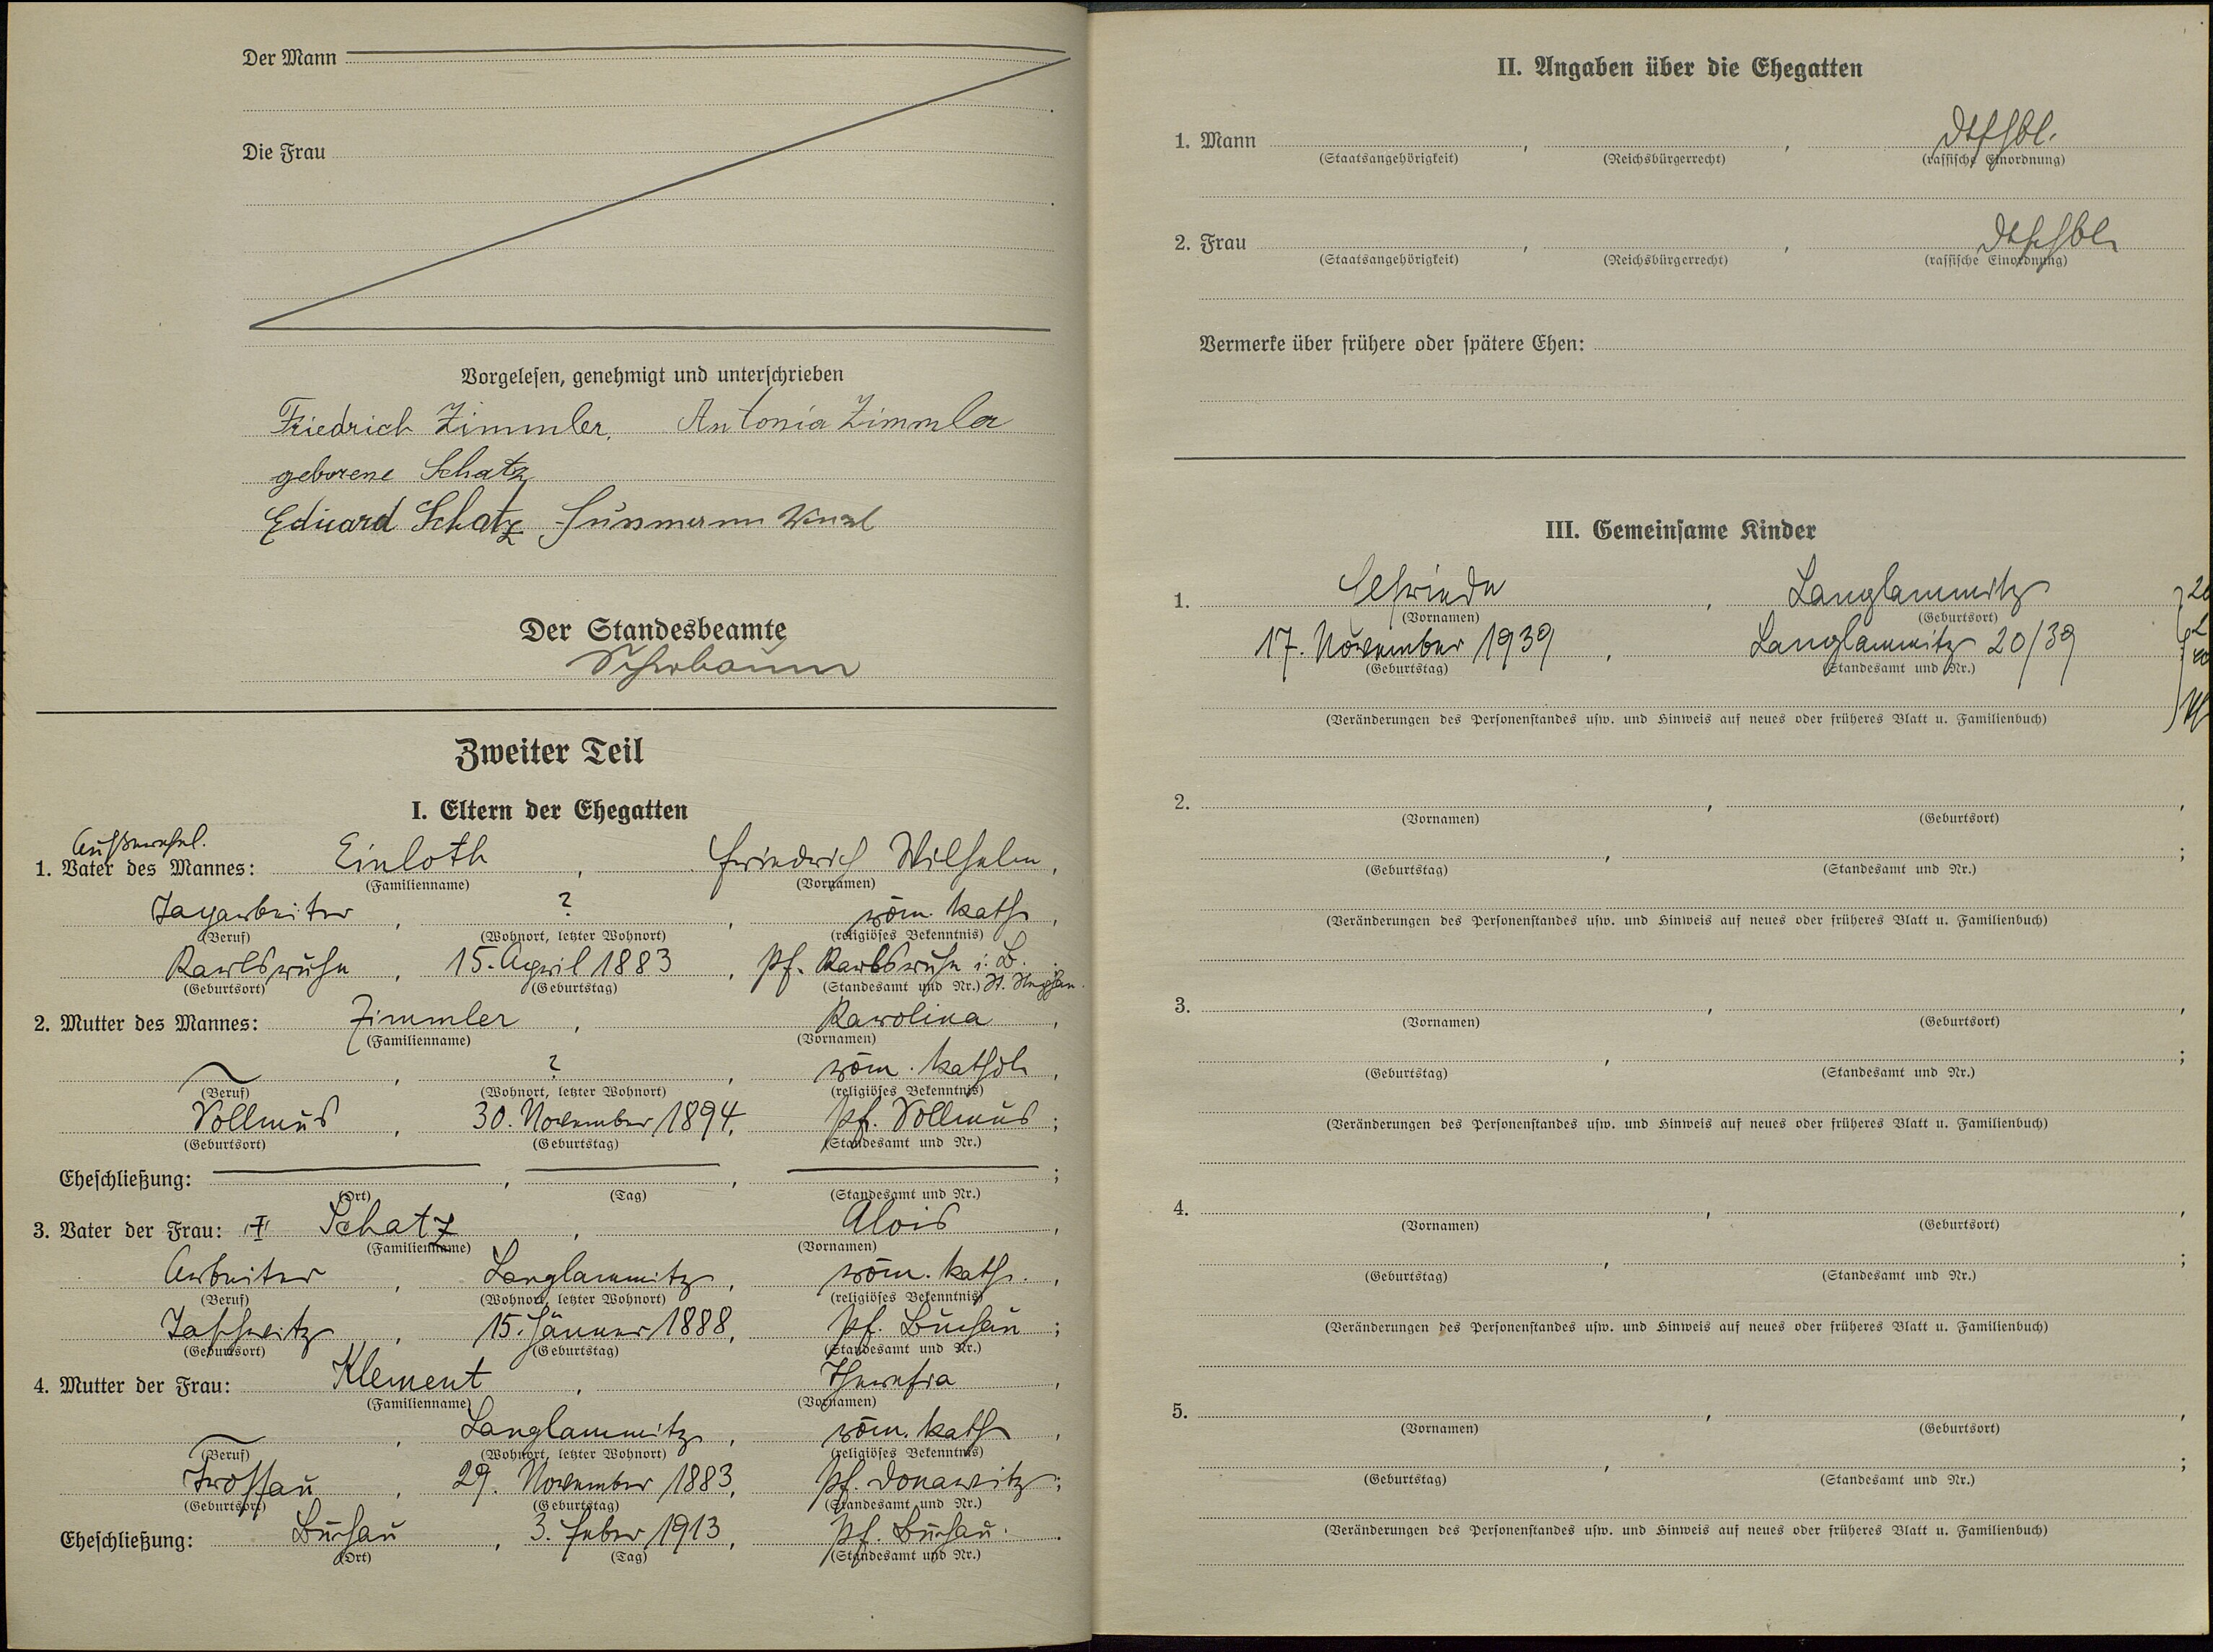 Der Mann
Die Frau
Vorgelesen, genehmigt und unterschrieben
Friedrich Zimmler. Antonia Zimmler
geborene Schatz
Eduard Schatz Wenzl
Der Standesbeamte
Zweiter Teil
I. Eltern der Ehegatten
Außerehel.
1. Vater des Mannes: Einloth, Friedrich Wilhelm,
(Familienname) (Vornamen)
Tagarbeiter, ?, röm. kath.,
(Beruf) (Wohnort, letzter Wohnort) (religiöses Bekenntnis)
Karlsruhe, 15. April 1883, Pf. Karlsruhe i. B.
(Geburtsort) (Geburtstag) (Standesamt und Nr.) St. Stephan.
2. Mutter des Mannes: Zimmler, Karolina,
(Familienname) (Vornamen)
, ?, röm. kathol.,
(Beruf) (Wohnort, letzter Wohnort) (religiöses Bekenntnis)
Sollmus, 30. November 1894, Pf. Sollmus;
(Geburtsort) (Geburtstag) (Standesamt und Nr.)
Eheschließung: , , ;
(Ort) (Tag) (Standesamt und Nr.)
3. Vater der Frau: Schatz, Alois,
(Familienname) (Vornamen)
Arbeiter, Langlammitz, röm. kath.,
(Beruf) (Wohnort, letzter Wohnort) (religiöses Bekenntnis)
Taschwitz, 15. Jänner 1888, Pf. Buchau;
(Geburtsort) (Geburtstag) (Standesamt und Nr.)
4. Mutter der Frau: Klement, Theresia,
(Familienname) (Vornamen)
, Langlammitz, röm. kath,
(Beruf) (Wohnort, letzter Wohnort) (religiöses Bekenntnis)
Trossau, 29. November 1883, Pf. Donawitz;
(Geburtsort) (Geburtstag) (Standesamt und Nr.)
Eheschließung: Buchau, 3. Feber 1913, Pf. Buchau.
(Ort) (Tag) (Standesamt und Nr.)
II. Angaben über die Ehegatten
1. Mann , , dtschbl.
(Staatsangehörigkeit) (Reichsbürgerrecht) (rassische Einordnung)
2. Frau , , dtschbl.
(Staatsangehörigkeit) (Reichsbürgerrecht) (rassische Einordnung)
Vermerke über frühere oder spätere Ehen:
III. Gemeinsame Kinder
1. Elfriede, Langlammitz
(Vornamen) (Geburtsort)
17. November 1939, Langlammitz 20/39
(Geburtstag) (Standesamt und Nr.)
(Veränderungen des Personenstandes usw. und Hinweis auf neues oder früheres Blatt u. Familienbuch)
2. , ,
(Vornamen) (Geburtsort)
, ;
(Geburtstag) (Standesamt und Nr.)
(Veränderungen des Personenstandes usw. und Hinweis auf neues oder früheres Blatt u. Familienbuch)
3. , ,
(Vornamen) (Geburtsort)
, ;
(Geburtstag) (Standesamt und Nr.)
(Veränderungen des Personenstandes usw. und Hinweis auf neues oder früheres Blatt u. Familienbuch)
4. , ,
(Vornamen) (Geburtsort)
, ;
(Geburtstag) (Standesamt und Nr.)
(Veränderungen des Personenstandes usw. und Hinweis auf neues oder früheres Blatt u. Familienbuch)
5. , ,
(Vornamen) (Geburtsort)
, ;
(Geburtstag) (Standesamt und Nr.)
(Veränderungen des Personenstandes usw. und Hinweis auf neues oder früheres Blatt u. Familienbuch)